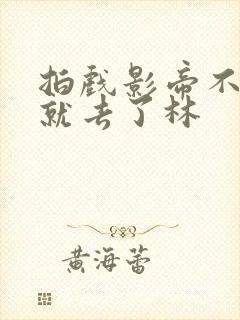 拍戏影帝不
就去了林
黄海蕾